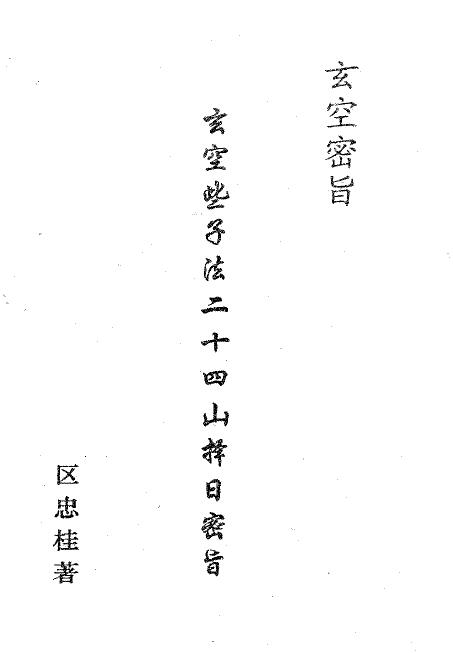 玄空密旨
玄空些子法二十四山择日密旨
区忠桂著